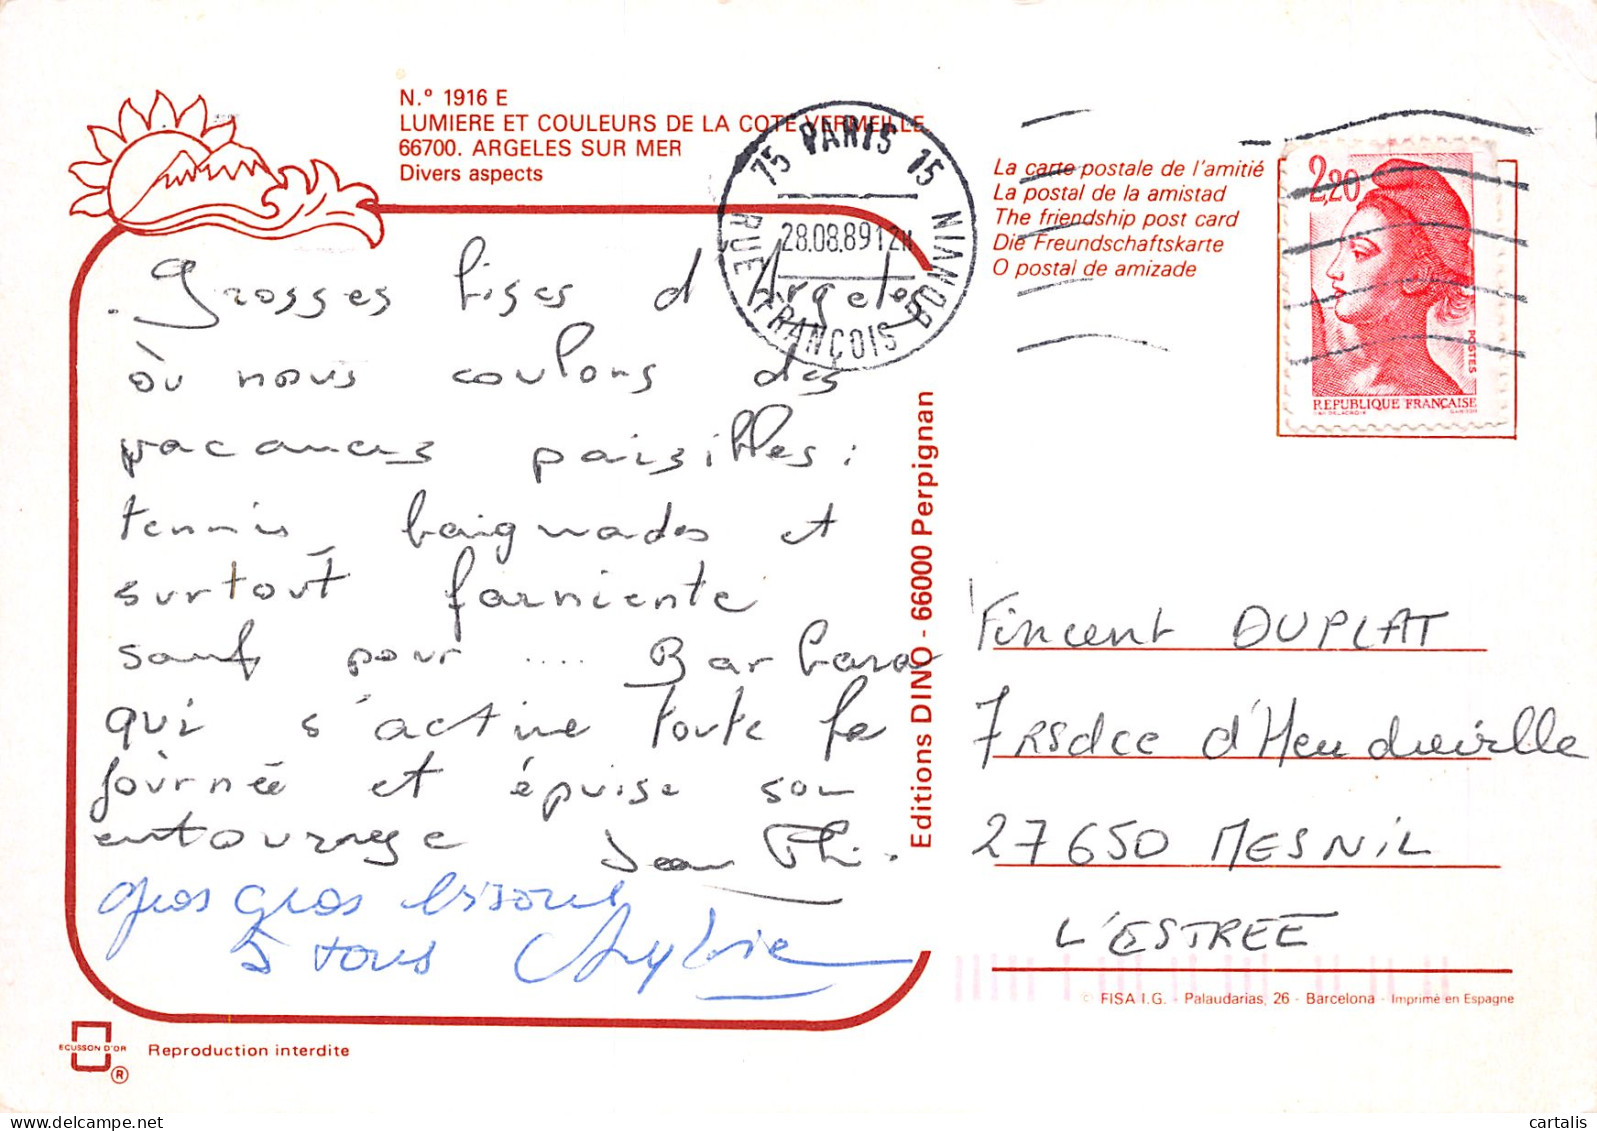 N.º 1916 E
LUMIERE ET COULEURS DE LA COTE VERMEILLE
66700. ARGELES SUR MER
Divers aspects
75 PARIS 15
28.08.89 12H
RUE FRANÇOIS BONVIN
La carte postale de l'amitié
La postal de la amistad
The friendship post card
Die Freundschaftskarte
O postal de amizade
2,20
POSTES
REPUBLIQUE FRANÇAISE
Grosses bises d'Argeles
où nous coulons des
vacances paisibles :
tennis, baignades et
surtout farniente
sauf pour .... Barbara
qui s'active toute la
journée et épuise son
entourage Jean Phi.
gros gros bisous
à tous Sylvie
Editions DINO - 66000 Perpignan
Vincent DUPLAT
7 Rsdce d'Heudreville
27650 MESNIL
L'ESTREE
© FISA I.G. - Palaudarias, 26 - Barcelona - Imprimé en Espagne
ECUSSON D'OR
®
Reproduction interdite
cartalis